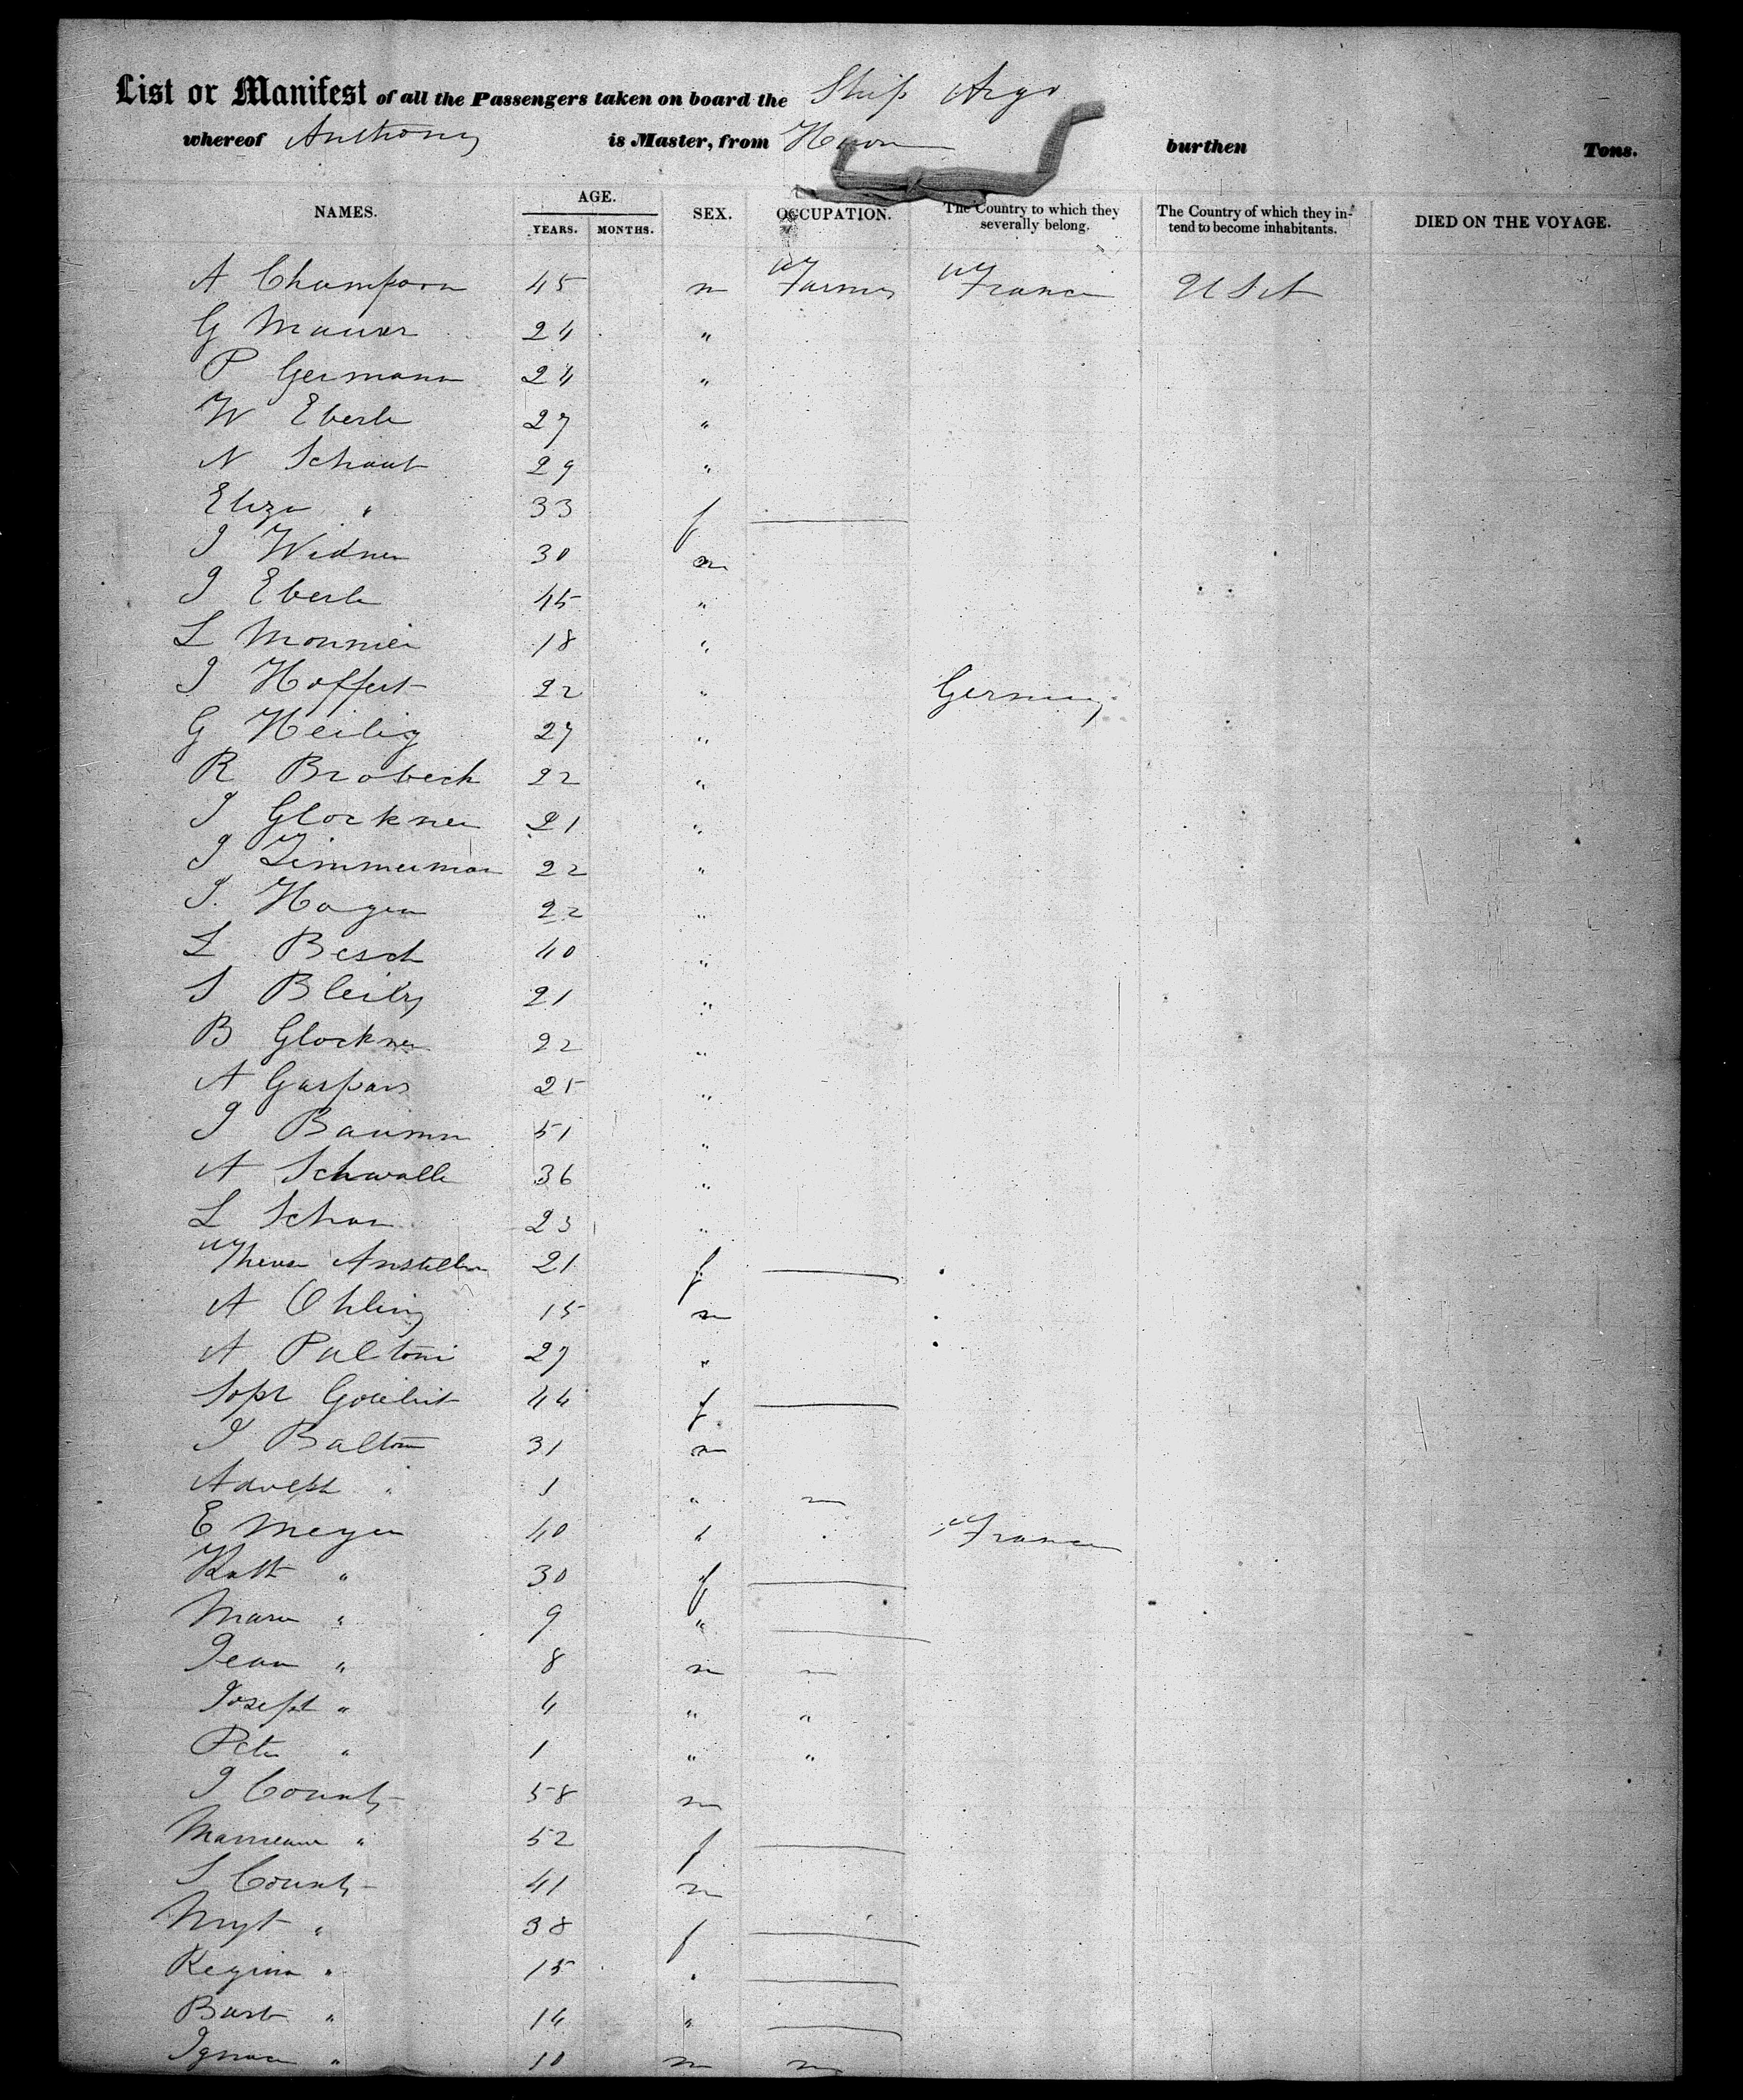 List or Manifest of all the Passengers taken on board the Ship Argo
whereof Anthony is Master, from burthen Tons.
NAMES. AGE. YEARS. MONTHS. SEX. OCCUPATION. The Country to which they severally belong. The Country of which they intend to become inhabitants. DIED ON THE VOYAGE.
A 45 m Farmer France U S A
G Maurer 24 "
P Germann 24 "
W Eberle 27 "
N Schaub 29 "
Eliza " 33 f
J Widmer 30 m
J Eberle 45 "
L Monnier 18 "
J Hoffert 22 " Germany
G Heilig 27 "
R Brobeck 22 "
J Glockner 21 "
J Zimmerman 22 "
J. Hagen 22 "
L Besch 40 "
S 21 "
B Glockner 22 "
A Gaspard 25 "
J Bauman 51 "
A Schwalle 36 "
L 23 "
21 f
A Ohling 15 m
A Paltoni 27 "
Soph 44 f
J 31 m
" 1 "
E Meyer 40 " France
Kath " 30 f
Marie " 9 "
Jean " 8 m
Joseph " 4 " "
Peter " 1 " "
J 58 m
" 52 f
S 41 m
Mgt " 38 f
Regina " 15 "
Barb " 14 "
Ignace " 10 m